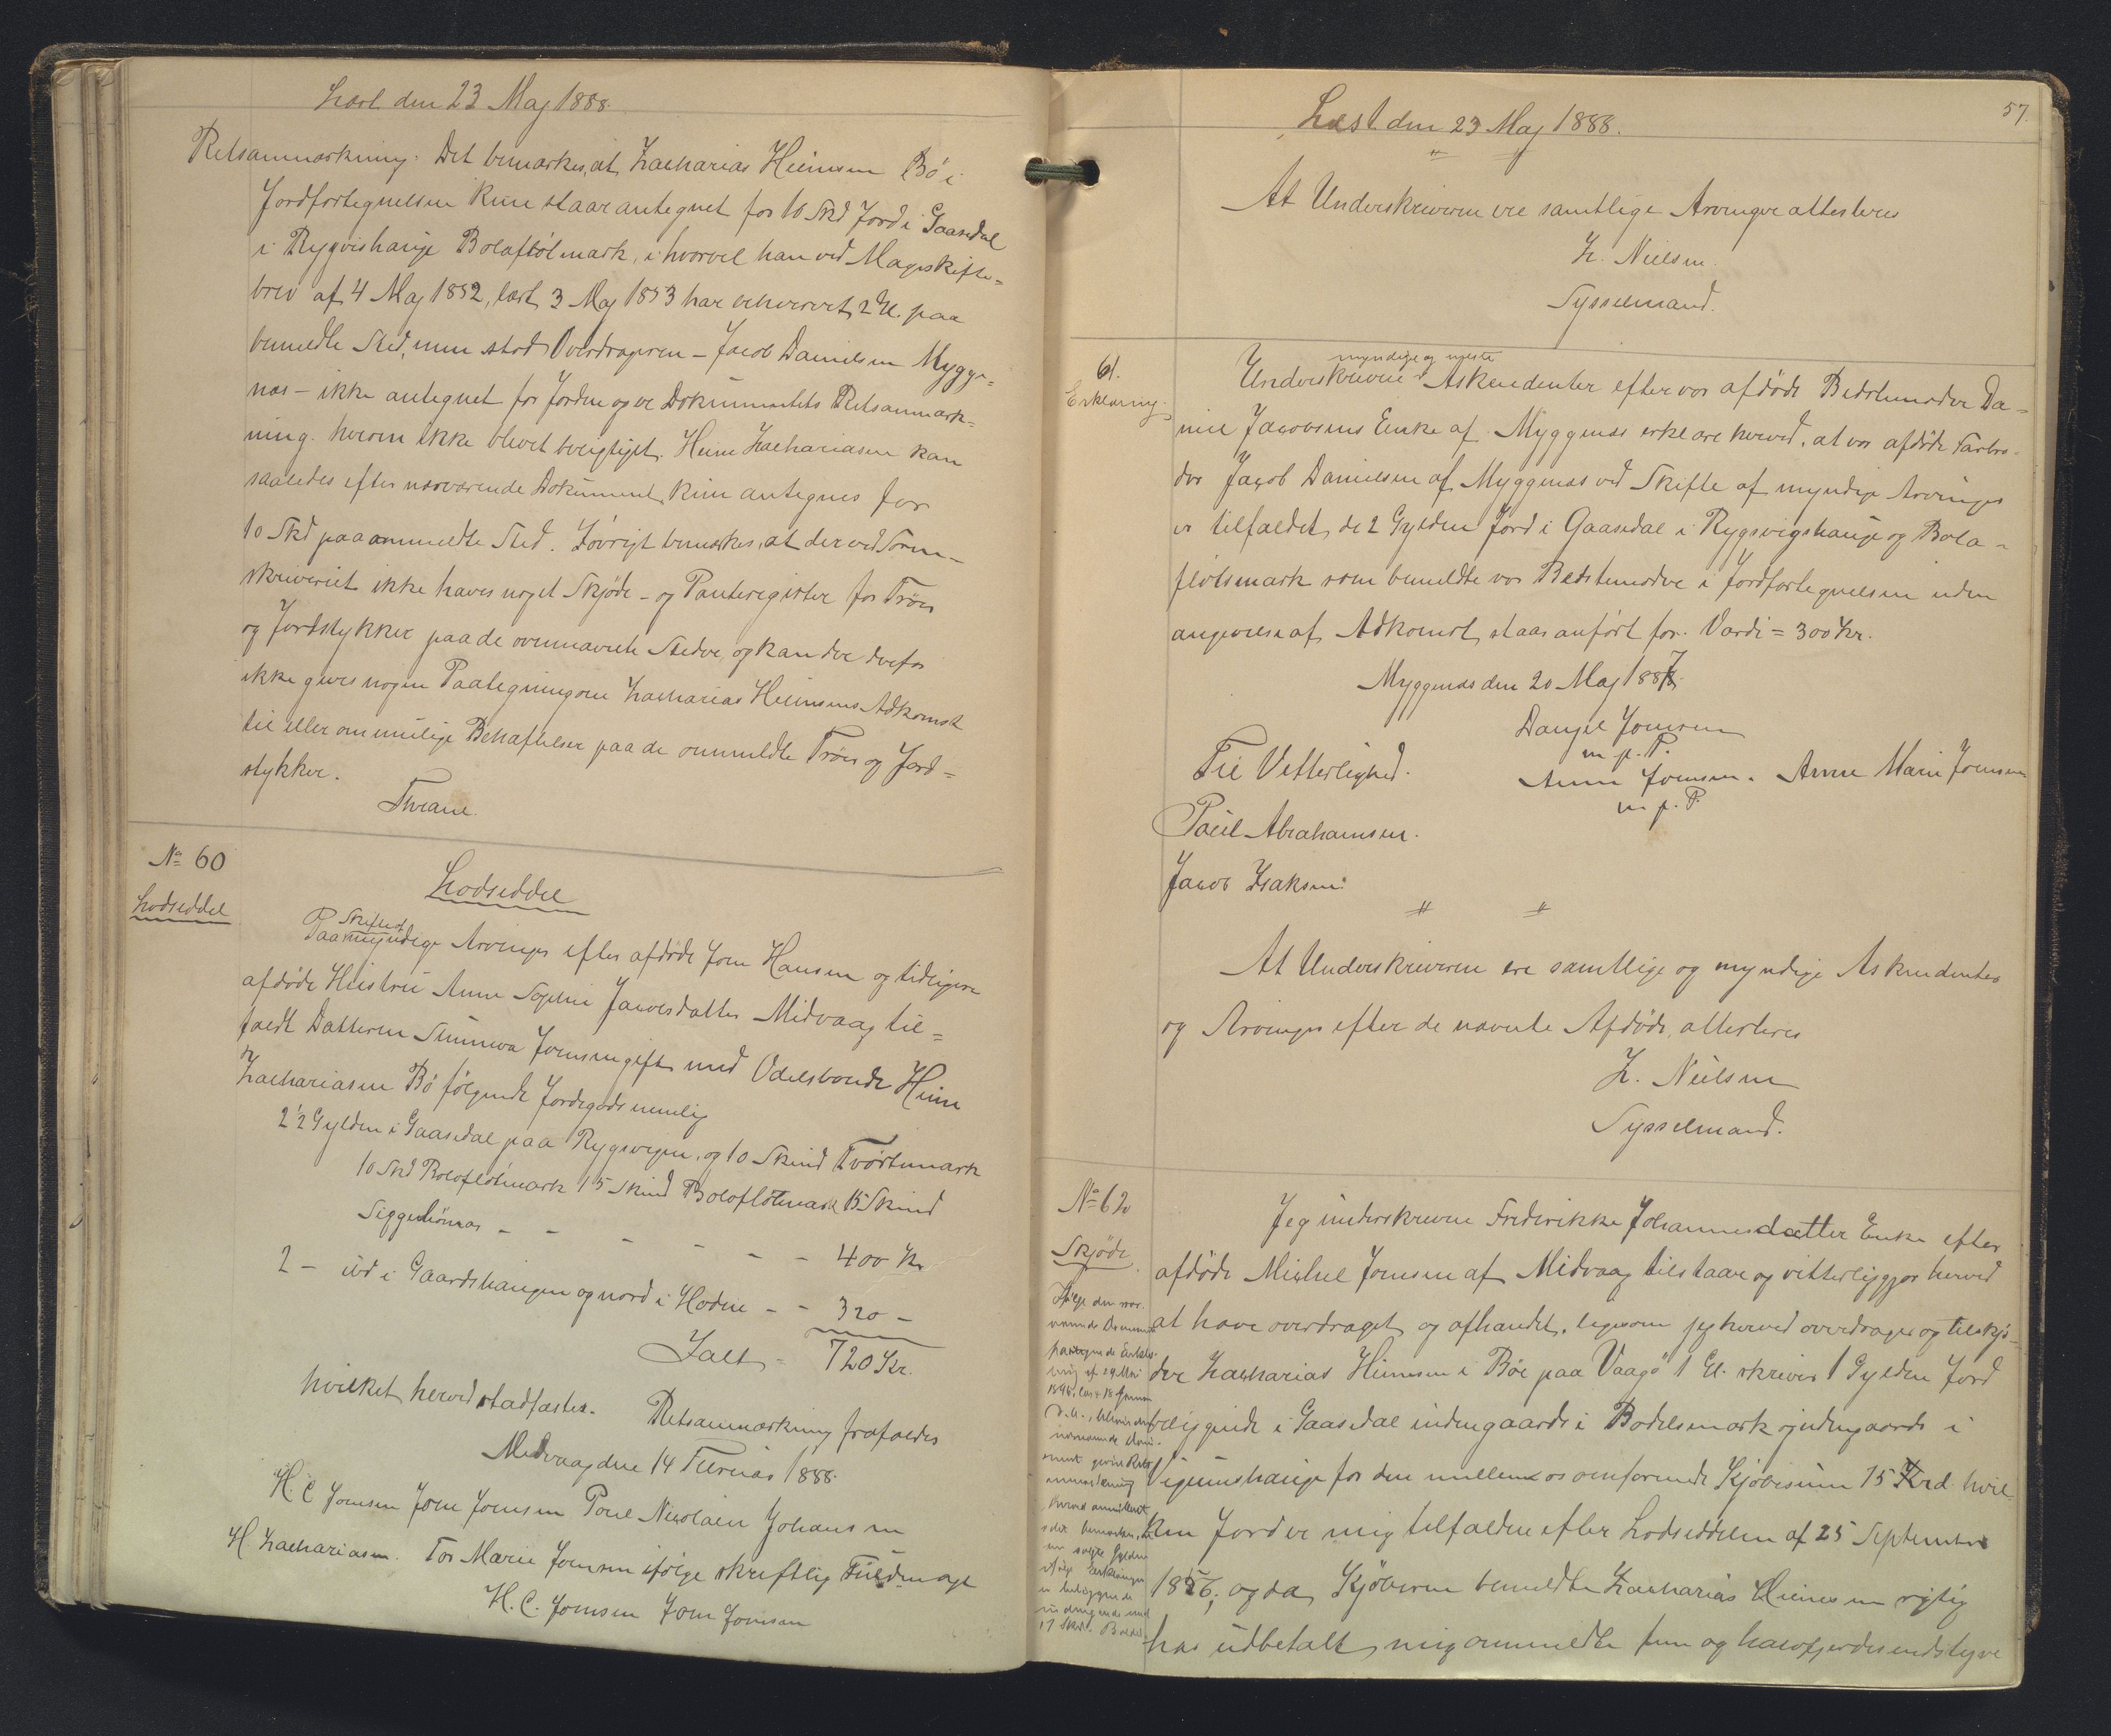 Læst den 23 Maj 1888.
Retsanmærkning. Det bemærkes, at Zacharias Heinesen Bø i
Jordfortegnelsen kun staar antegnet for 16 Skd Jord i Gaasedal
i Rygvishauge Bolafløtmark, i hvorvel han ved Mageskifte-
brev af 4 Maj 1852, læst 3 Maj 1853 har erhvervet 2 Gl. paa
bemeldte Sted, men stod Overdrageren - Jacob Danielsen Mygge-
næs - ikke antegnet for Jorden og er Dokumentets Retsanmærk-
ning herom ikke blevet berigtiget. Heine Zachariasen kan
saaledes efter nærværende Dokument kun antegnes for
10 Skd paa anmeldte Sted. Iøvrigt bemærkes, at der ved Soren-
skriveriet ikke haves noget Skjøde- og Panteregister for Trøer
og Jordstykker paa de ovennævnte Steder, og kan der derfor
ikke gives nogen Paategning om Zacharias Heinesens Adkomst
til eller om mulige Behæftelser paa de ommeldte Trøer og Jord=
stykker.
Thrane.
No 60
Lodseddel
Lodseddel
Skiftet
Paa myndige Arvinger efter afdøde Joen Hansen og tidligere
afdøde Hustru Anne Sophie Jacobsdatter Midvaag til=
faldt Datteren Sunneva Joensen gift med Odelsbonde Heine
Zachariasen Bø følgende Jordegods nemlig
2 1/2 Gylden i Gaasedal paa Rygsvejen, og 10 Skind Tvørtmark
10 Skd Bolofløtmark 15 Skind Bolofløtmark 15 Skind
- - - - - - 400 Kr
2 - ud i Gaardshaugen og nord i - - 320 -
Ialt = 720 Kr.
hvilket herved stadfæstes. Retsanmærkning frafaldes
Midvaag den 14 Februar 1888.
H. C Joensen Joen Joensen Poul Nicolai Johansen
H Zachariasen. For Marie Joensen ifølge skriftlig Fuldmagt
H. C. Joensen Joen Joensen
57.
Læst den 23 Maj 1888.
" "
At Underskriverne ere samtlige Arvinger attesteres
Z. Nielsen.
Sysselmand.
61.
Erklæring.
myndige og nejste
Underskrevne Askendenter efter vor afdøde Bedstemoder Da-
niel Jacobsens Enke af Myggenæs erklære herved, at vor afdøde Farbro-
der Jacob Danielsen af Myggenæs ved Skifte af myndige Arvinger
er tilfaldet de 2 Gylden Jord i Gaasedal i Rygsvigshauge og Bola-
fløtsmark som bemeldte vor Bedstemoder i Jordfortegnelsen uden
angivelse af Adkomst staar anført for. Værdi = 300 Kr.
Myggenæs den 20 Maj 1887.
Danjel Joensen
m. p. P.
Til Vitterlighed. Anna Joensen. Anne Marie Joensen
m. p. P.
Paul Abrahamsen.
Jacob Isaksen.
" "
At Underskriverne ere samtlige og myndige Askendenter
og Arvinger efter de nævnte Afdøde, attesteres
Z. Nielsen
Sysselmand.
No 62
Skjøde
Jeg underskrevne Frederikke Johannesdatter Enke efter
afdøde Michel Joensen af Midvaag tilstaar og vitterliggjør herved
at have overdraget og afhændet, ligesom jeg herved overdrager og tilskjø-
der Zacharias Heinesen i Bøe paa Vaagø 1 Gl. skriver 1 Gylden Jord
beliggende i Gaasedal indengaards i Bødelsmark og udengaards i
for den mellem os omforenede Kjøbesum 75 Krd. hvil-
ken Jord er mig tilfalden efter Lodseddelen af 25 September
1856, og da Kjøberen bemeldte Zacharias Heinesen rigtig
har udbetalt mig ommeldte fem og halvfjerdesindstyve